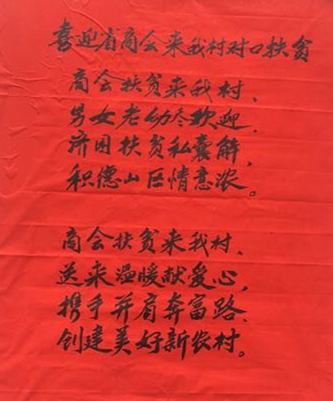 喜迎省商会来我村对口扶贫
商会扶贫来我村、
男女老幼尽欢迎、
济困扶贫私囊解，
积德山区情意浓。
商会扶贫来我村、
送来温暖献爱心，
携手并肩奔富路、
创建美好新农村。